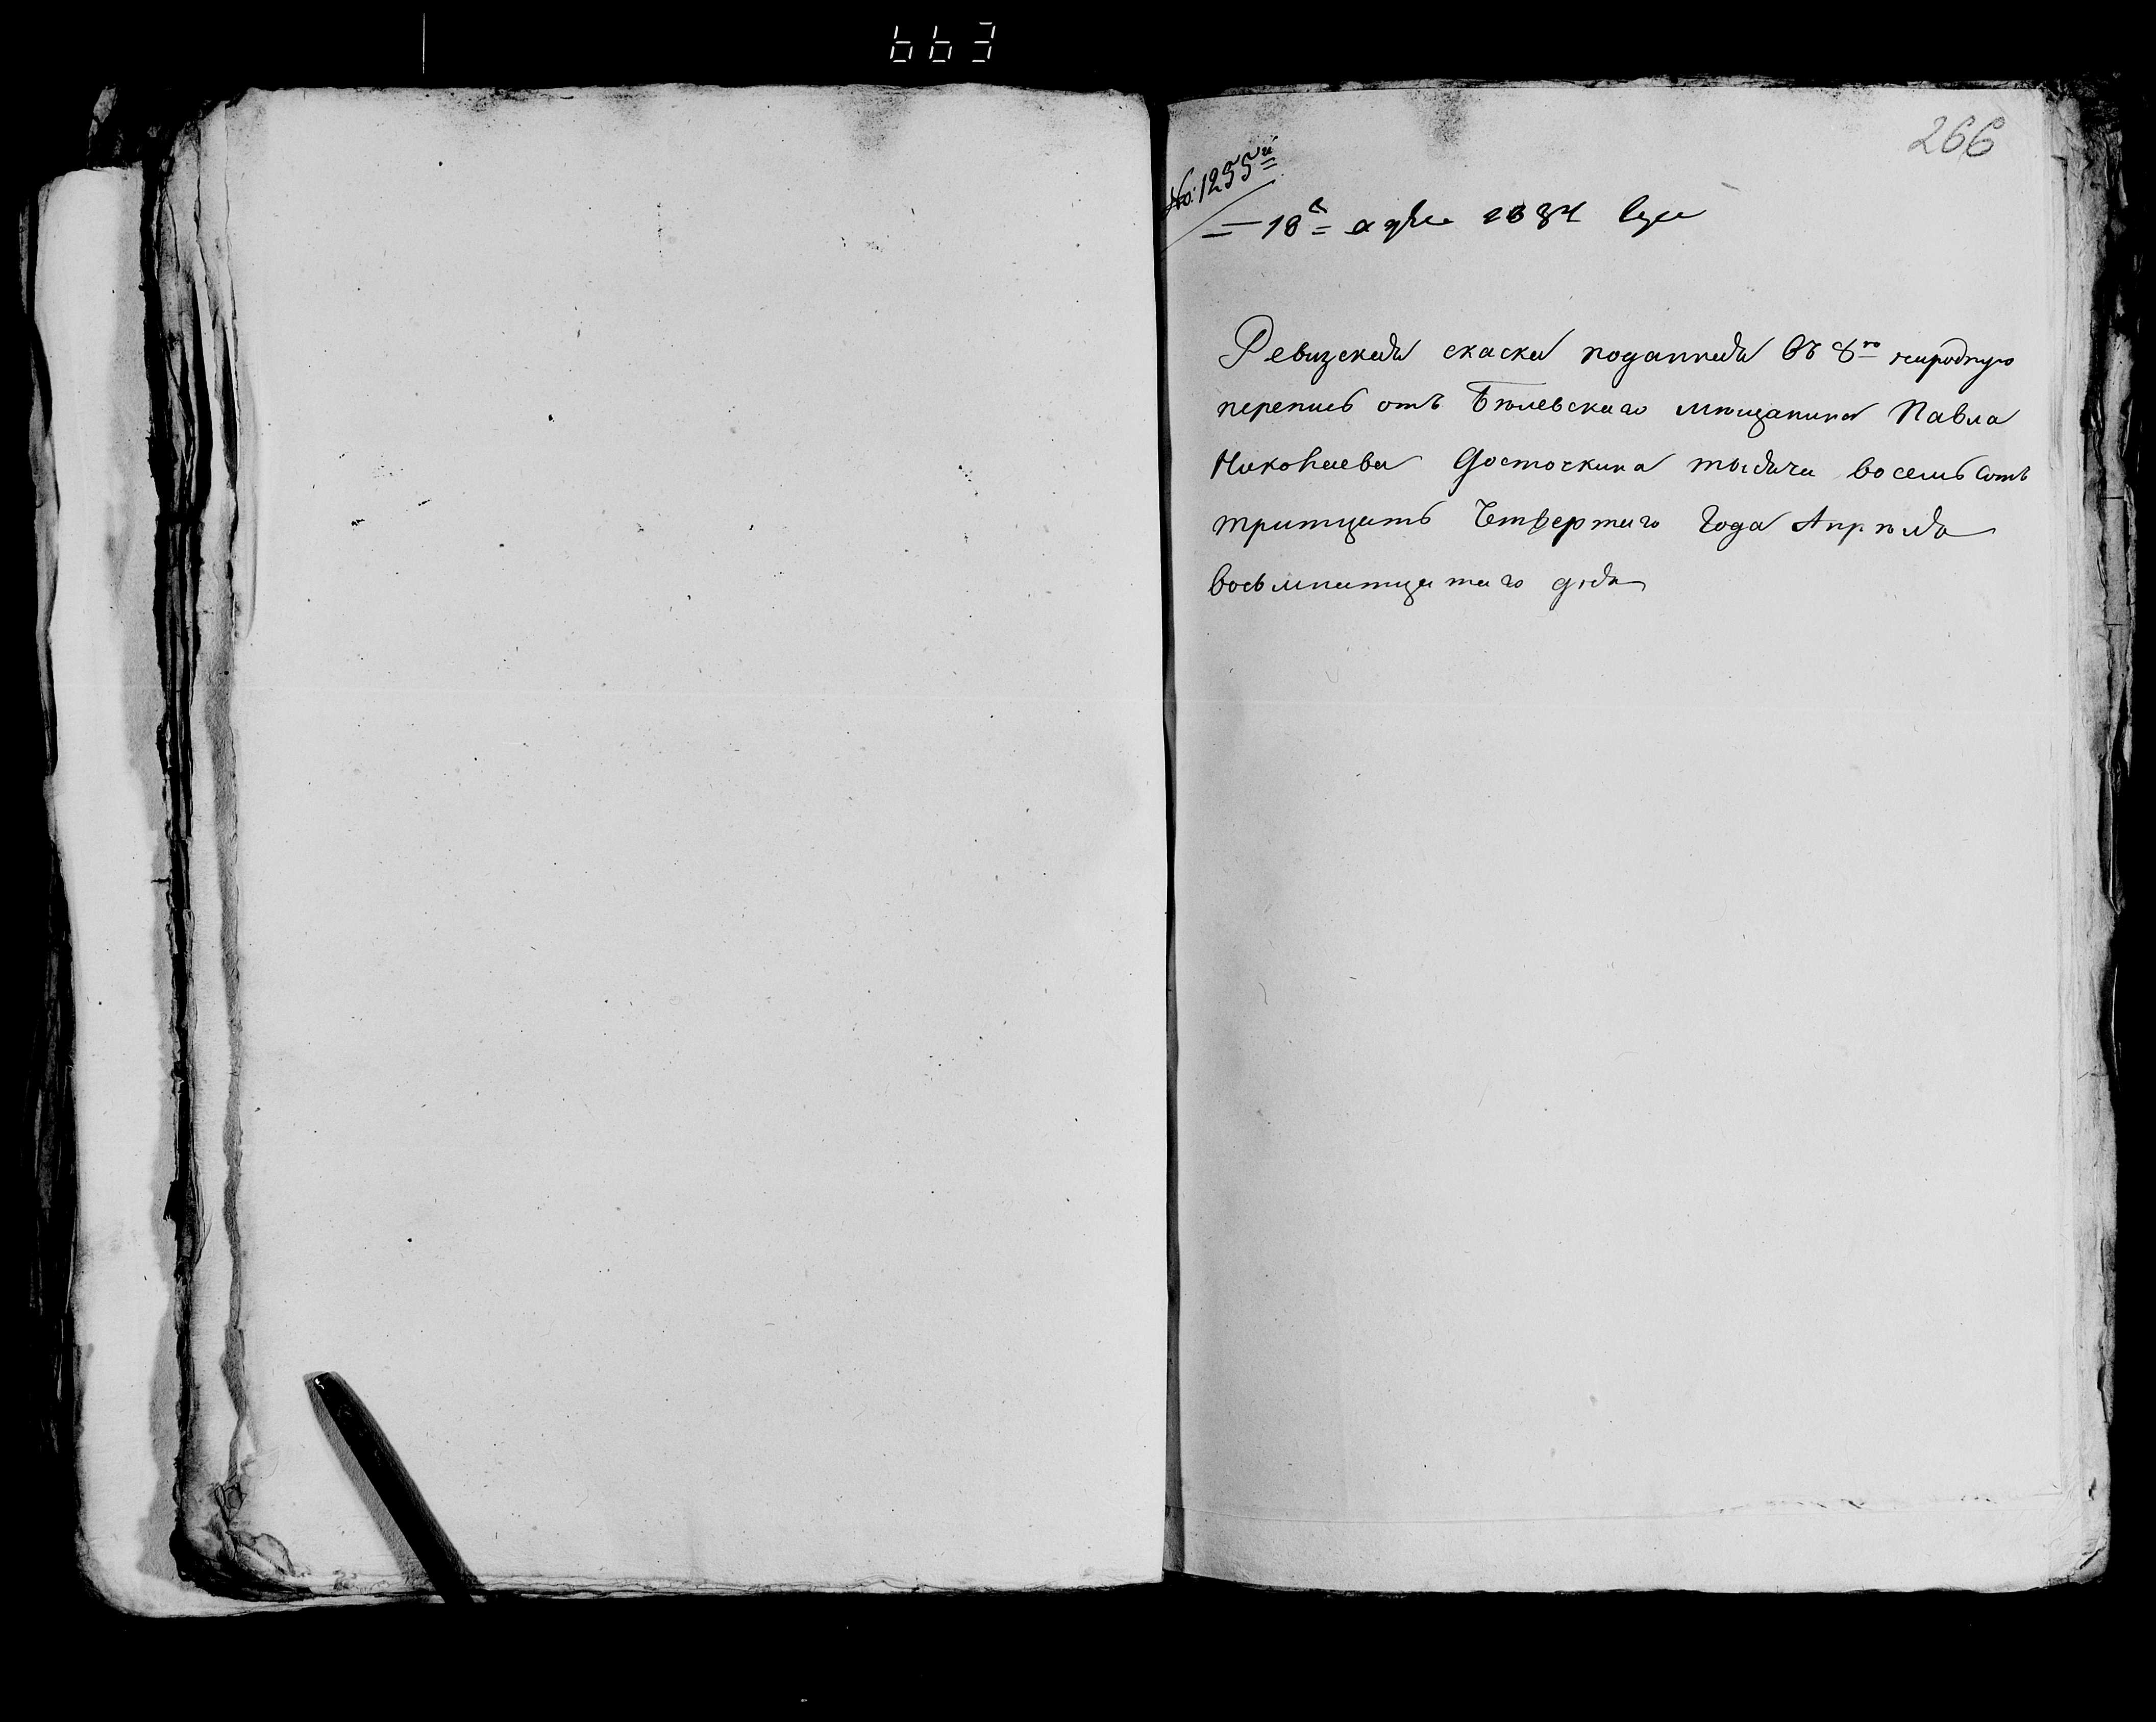 663
266
№ 1255й
18 апре 1834 года
Ревизская скаска поданная въ 8ю народную
перепись отъ Бѣлевскаго мѣщанина Павла
Николаева Досточкина тысяча восемь сотъ
тритцать Четвертаго Года Апрѣля
восьмнатцатаго дня